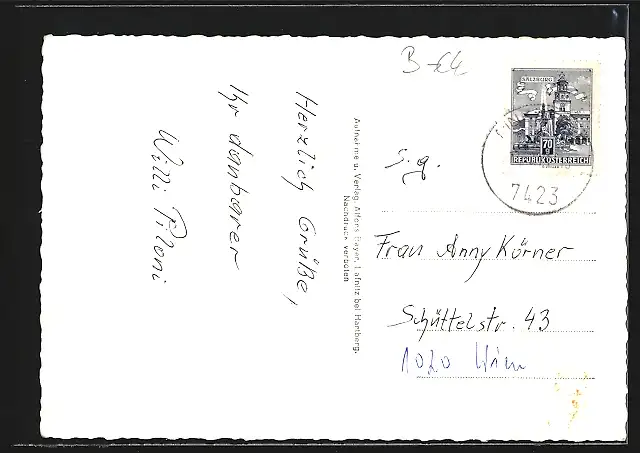 Herzlich Grüße,
Ihr dankbarer
Willi Piloni
Aufnahme u. Verlag Alfons Bayer, Lafnitz bei Hartberg.
Nachdruck verboten
SALZBURG
70
REPUBLIK ÖSTERREICH
7423
Frau Anny Körner
Schüttelstr. 43
1020 Wien